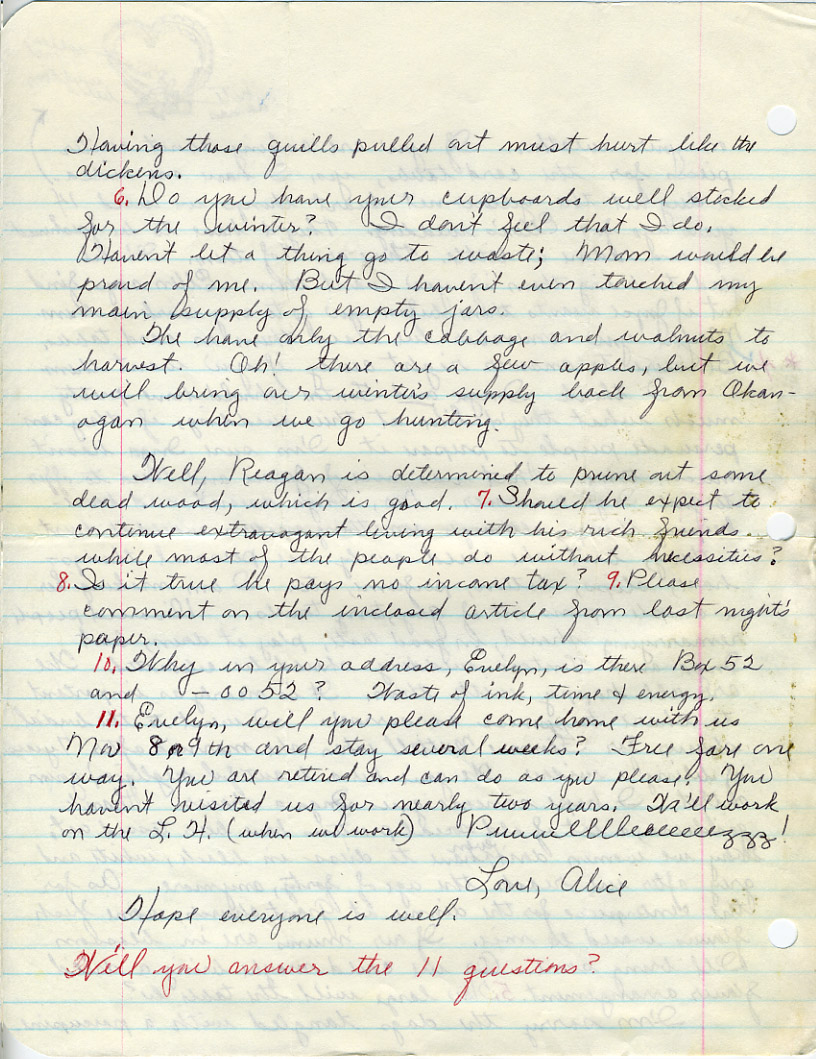 Having those quills pulled out must hurt like the
dickens.
6. Do you have your cupboards well stocked
for the winter? I don't feel that I do.
Haven't let a thing go to waste; Mom would be
proud of me. But I haven't even touched my
main supply of empty jars.
We have only the cabbage and walnuts to
harvest. Oh! there are a few apples, but we
will bring our winter's supply back from Okan-
ogan when we go hunting.
Well, Reagan is determined to prune out some
dead wood, which is good. 7. Should he expect to
continue extravagant living with his rich friends
while most of the people do without necessities?
8. Is it true he pays no income tax? 9. Please
comment on the inclosed article from last night's
paper.
10. Why in your address, Evelyn, is there Box 52
and -0052? Waste of ink, time & energy.
11. Evelyn, will you please come home with us
Nov 8 or 9th and stay several weeks? Free fare one
way. You are retired and can do as you please. You
haven't visited us for nearly two years. We'll work
on the L. H. (when we work)
Love, Alice
Hope everyone is well.
Will you answer the 11 questions?